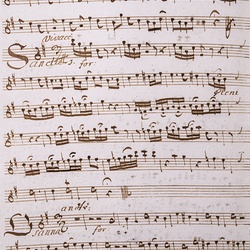 Vivace
Sanctus. for
Pleni
andte.
Osanna for